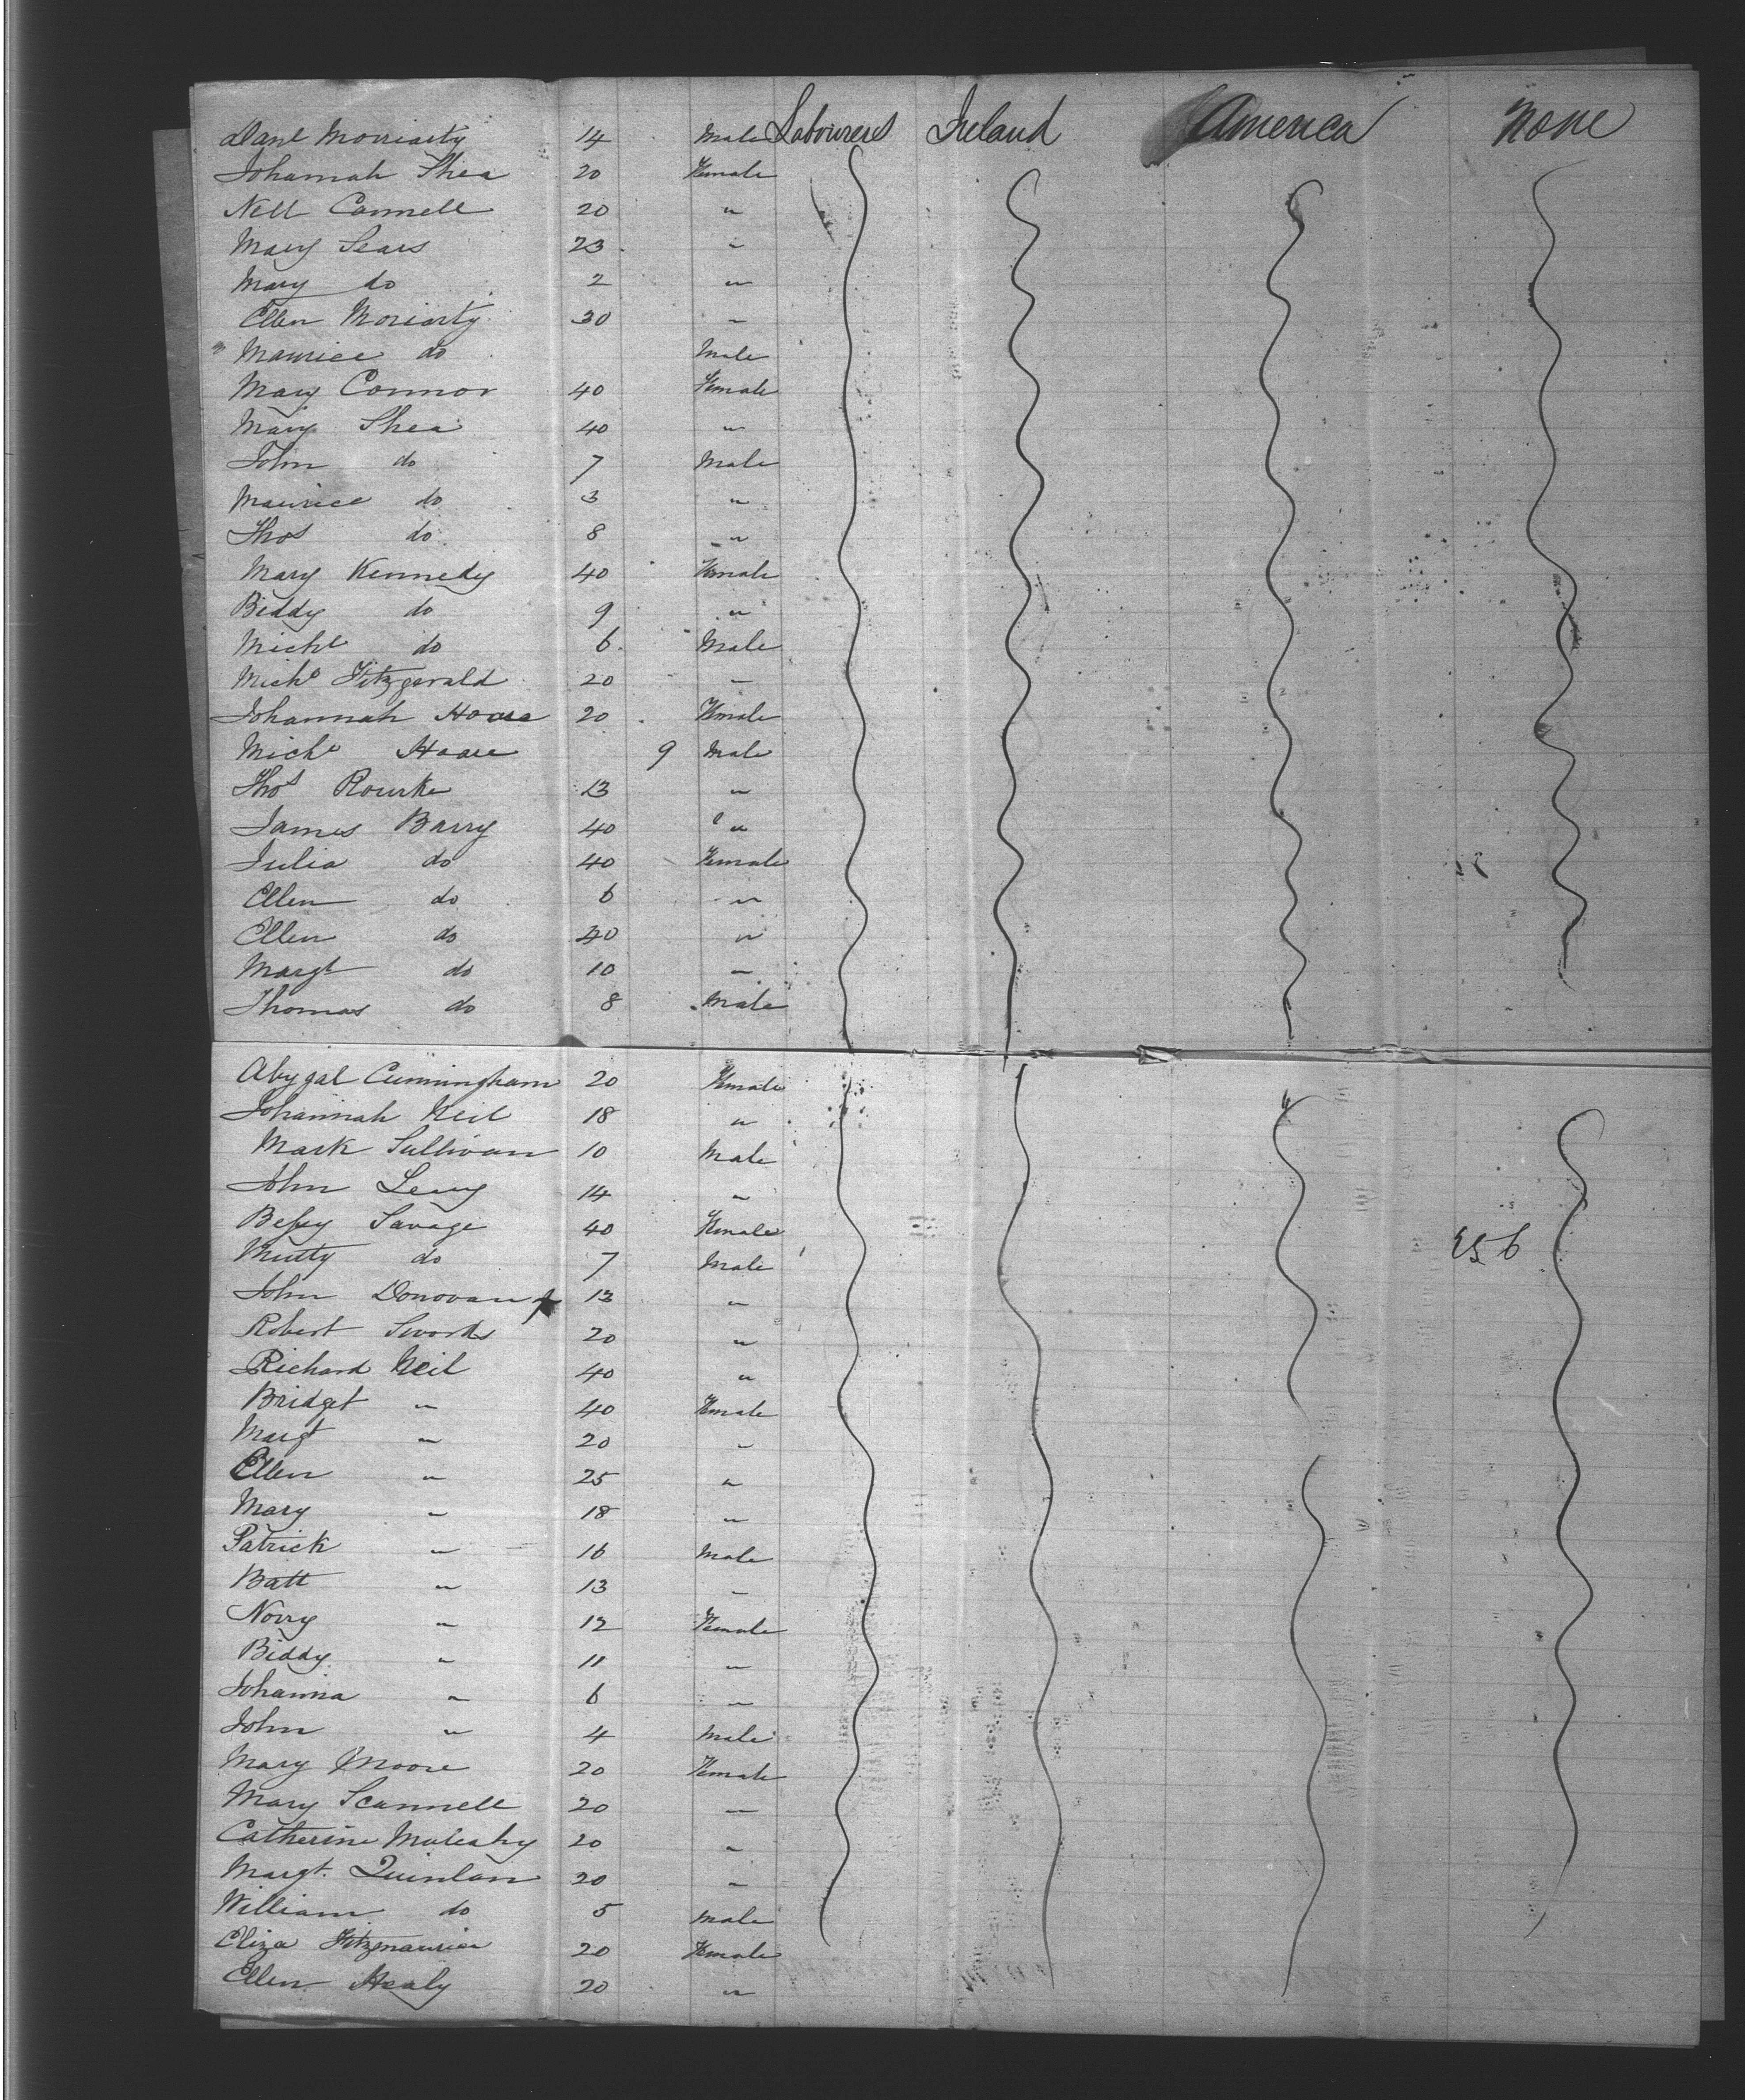 Danl Morriarty 14 Male Labourers Ireland America None
Johannah Shea 20 Female
Nell Connell 20 "
Mary Sears 23 "
Mary do 2 "
Ellen Moriarty 30 "
Maurice do Male
Mary Connor 40 Female
Mary Shea 40 "
John do 7 Male
Maurice do 3 "
Thos do 8 "
Mary Kennedy 40 Female
Biddy do 9 "
Michl do 6 Male
Michl Fitzgerald 20 "
Johannah Hoare 20 Female
Michl Hoare 9 Male
Thos Rourke 13 "
James Barry 40 "
Julia do 40 Female
Ellen do 6 "
Ellen do 40 "
Margt do 10 "
Thomas do 8 Male
Abygal Cunningham 20 Female
Johannah Neil 18 "
Mark Sullivan 10 Male
John Leary 14 "
Bessy Savage 40 Female
do 7 Male
John Donovan 13 "
Robert Swords 20 "
Richard Neil 40 "
Bridget " 40 Female
Margt " 20 "
Ellen " 25 "
Mary " 18 "
Patrick " 16 Male
Batt " 13 "
Norry " 12 Female
Biddy " 11 "
Johanna " 6 "
John " 4 Male
Mary Moore 20 Female
Mary Scannell 20 "
Catherine Mulcahy 20 "
Margt. Quinlan 20 "
William do 5 Male
Eliza Fitzmaurice 20 Female
Ellen Healy 20 "